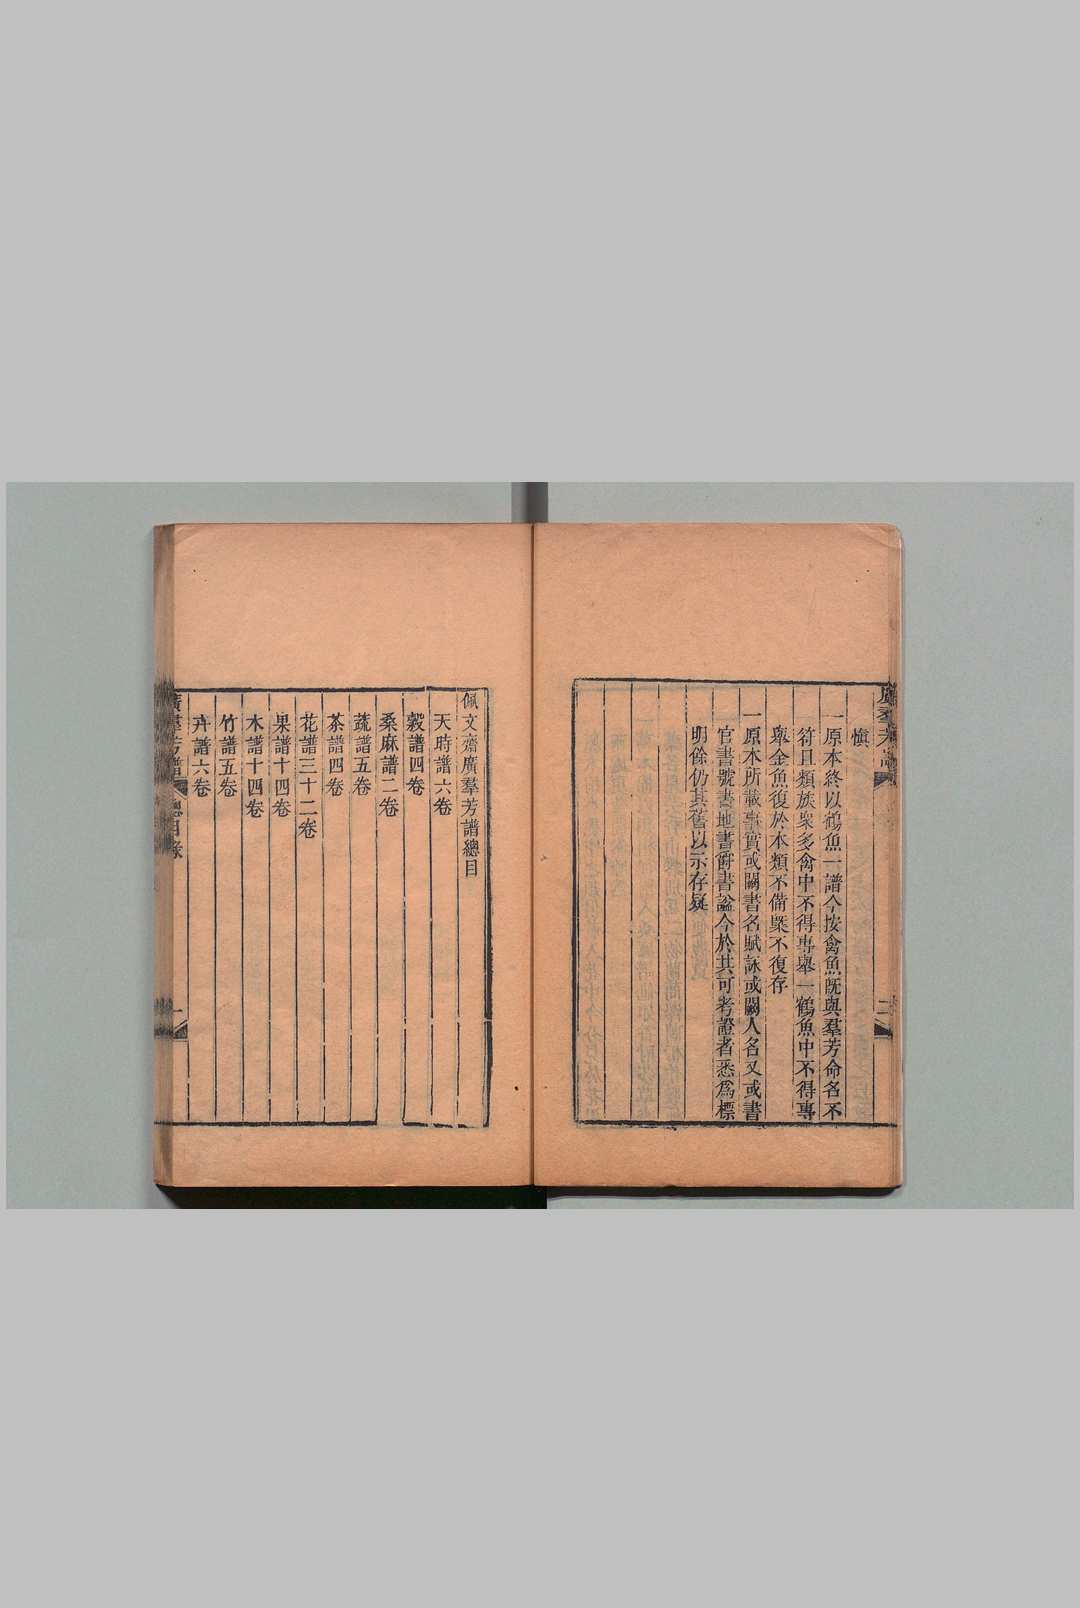 慎
一原本終以鶴魚一譜今按禽魚旣與羣芳命名不
符且類族衆多禽中不得專舉一鶴魚中不得專
舉金魚復於本類不備槩不復存
一原本所載事實或闕書名賦詠或闕人名又或書
官書號書地書爵書謚今於其可考證者悉爲標
明餘仍其舊以示存疑
佩文齋廣羣芳譜總目
天時譜六卷
穀譜四卷
桑麻譜二卷
蔬譜五卷
茶譜四卷
花譜三十二卷
果譜十四卷
木譜十四卷
竹譜五卷
卉譜六卷
廣羣芳譜 總目錄 一